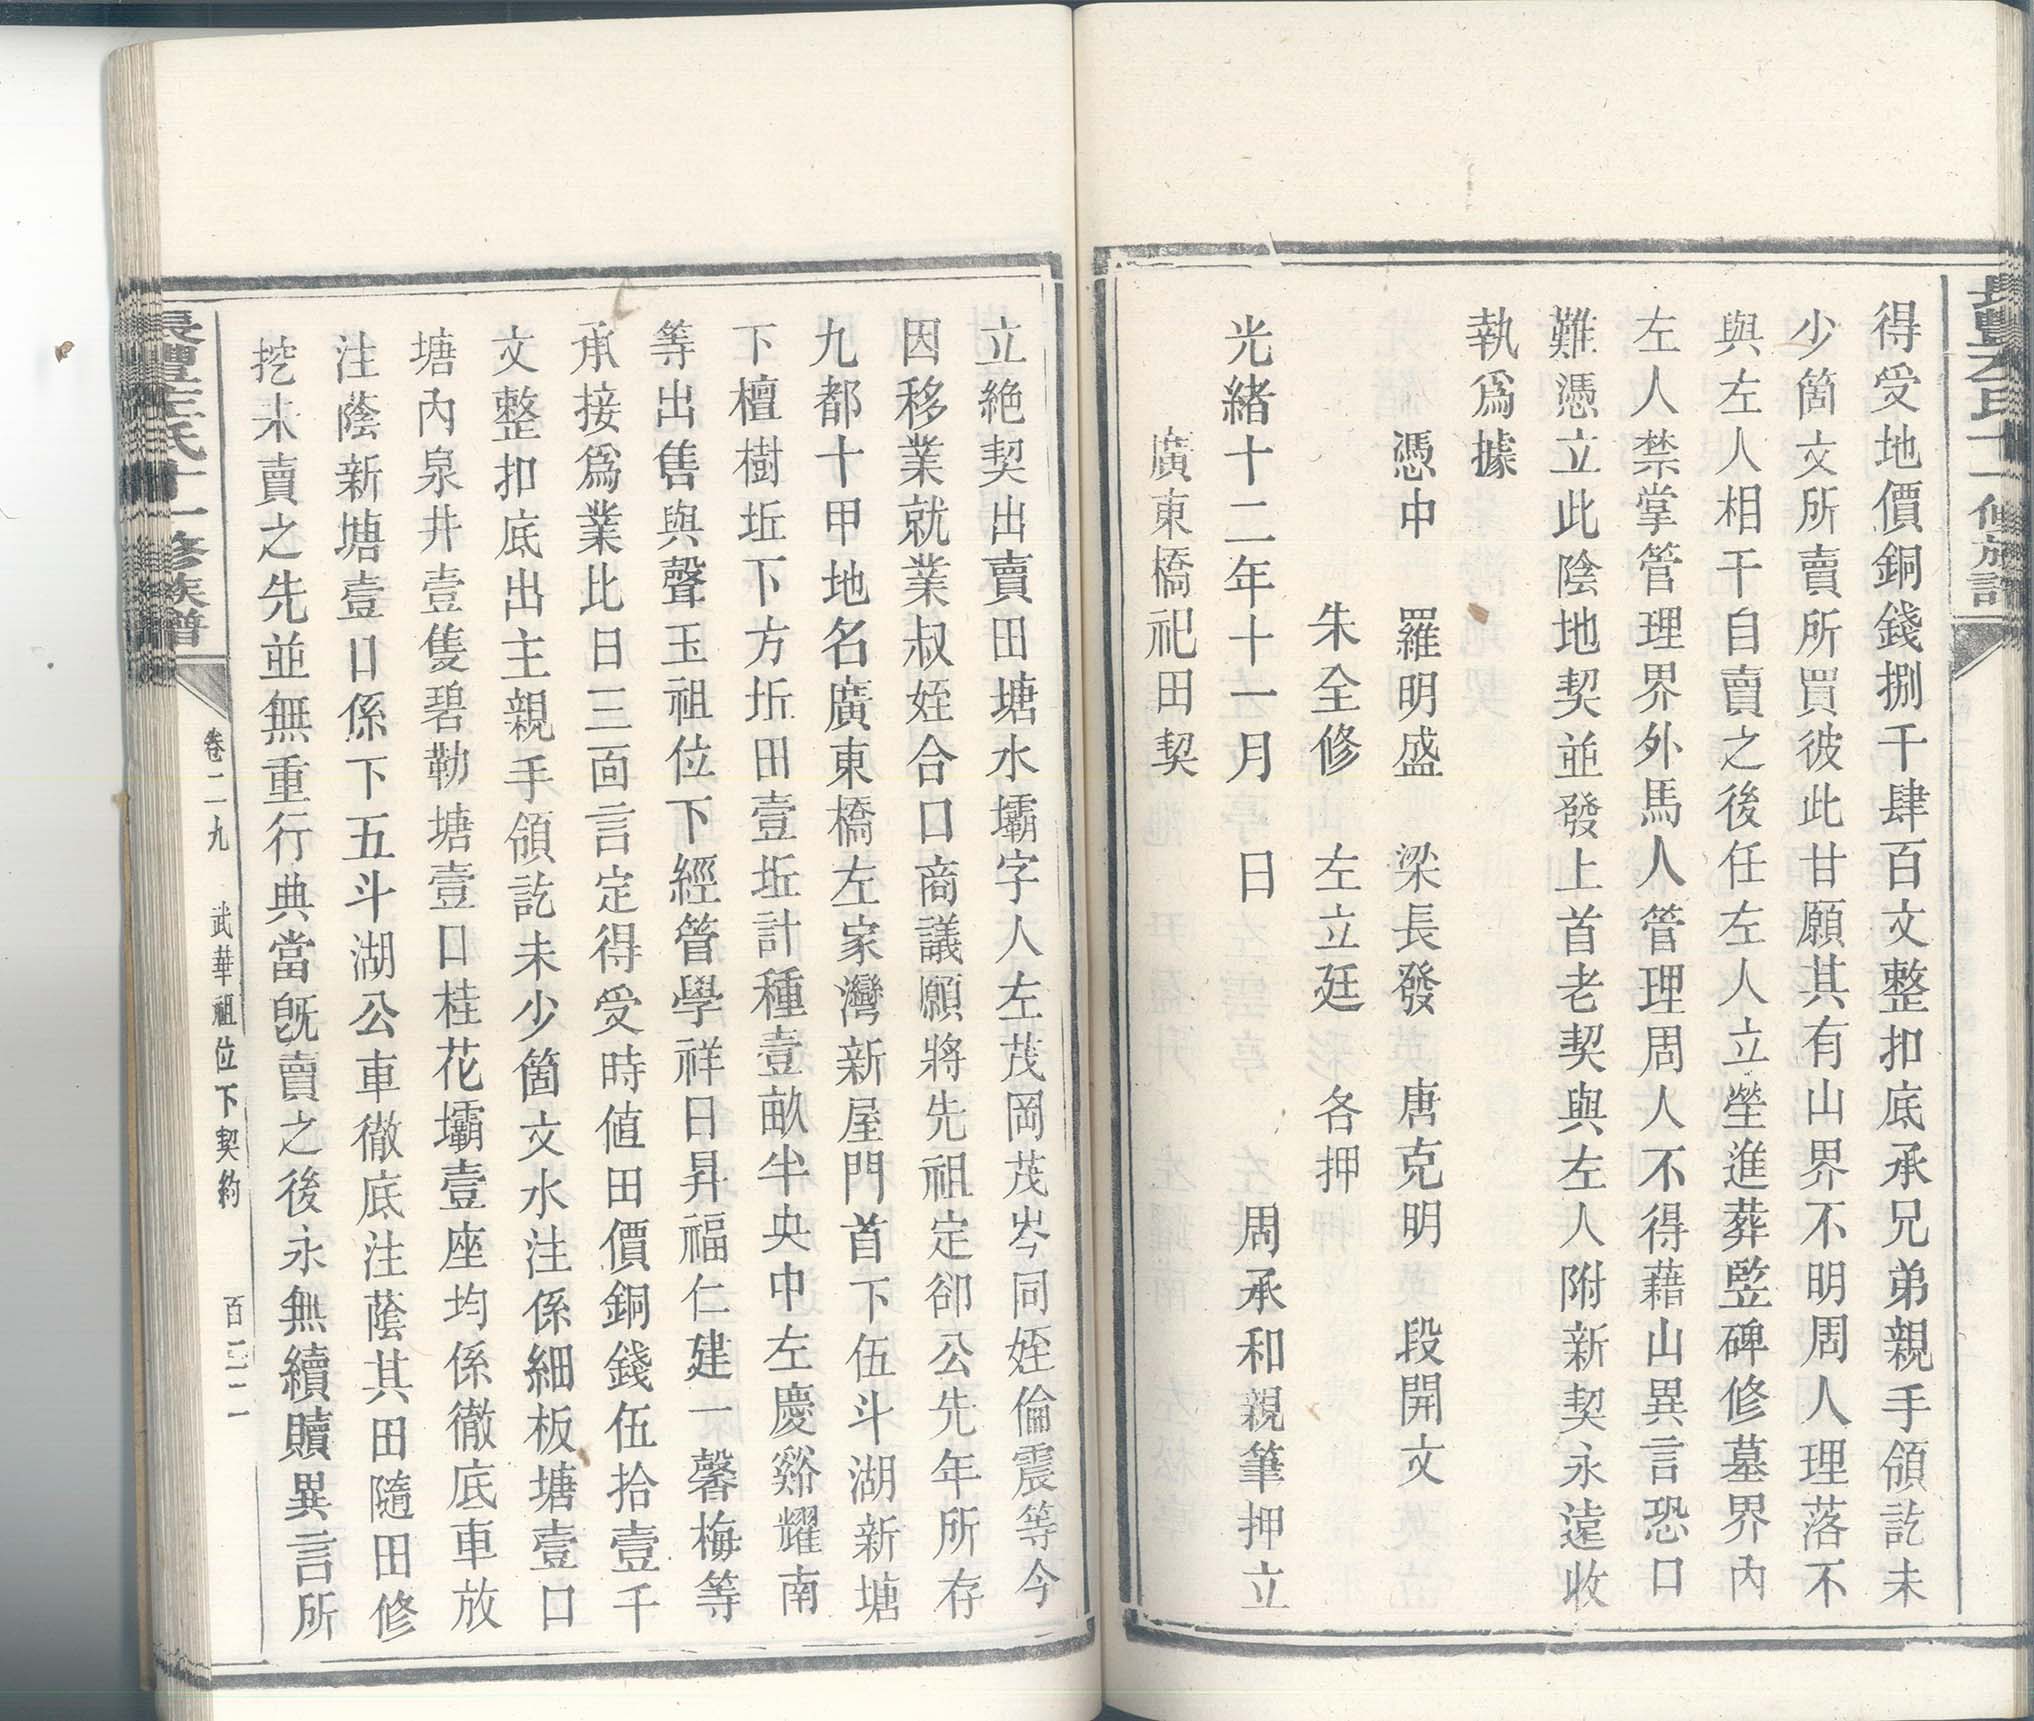 得受地價銅錢捌千肆百文整扣底承兄弟親手領訖未
少箇文所賣所買彼此甘願其有山界不明周人理落不
與左人相干自賣之後任左人立塋進葬監碑修墓界內
左人禁掌管理界外馬人管理周人不得藉山異言恐口
難憑立此陰地契並發上首老契與左人附新契永遠收
執爲據
憑中 羅明盛 梁長發 唐克明 段開文
朱全修 左立廷 各押
光緒十二年十一月 日 周承和親筆押立
廣東橋祀田契
立絶契出賣田塘水壩字人左茂岡茂岑同姪倫震等今
因移業就業叔姪合口商議願將先祖定卿公先年所存
九都十甲地名廣東橋左家灣新屋門首下伍斗湖新塘
下檀樹坵下方坵田壹坵計種壹畝半央中左慶谿耀南
等出售與聲玉祖位下經管學祥日昇福仁建一馨梅等
承接爲業比日三面言定得受時值田價銅錢伍拾壹千
文整扣底出主親手領訖未少箇文水注係細板塘壹口
塘內泉井壹隻碧勒塘壹口桂花壩壹座均係徹底車放
注蔭新塘壹口係下五斗湖公車徹底注蔭其田隨田修
挖未賣之先並無重行典當旣賣之後永無續贖異言所
長澧左氏十一修族譜
卷二九 武華祖位下契約